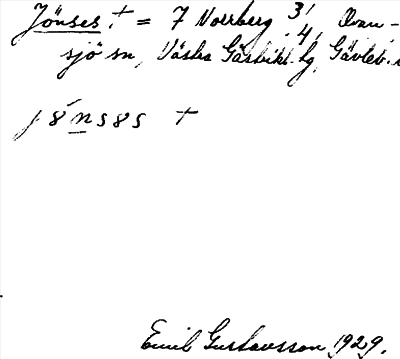 Jönses † = 7 Norrberg 3/4, Ovan-
sjö sn, Västra Gästrikl. hg, Gävleb.
j8́ns8s †
Emil Gustavsson 1929.